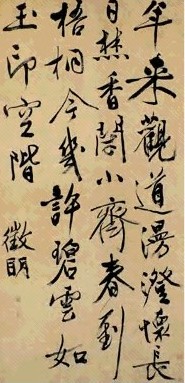 年来觀道漫澄懷長
日焚香閟小齋春到
梧桐今幾許碧雲如
玉印空階
徵明